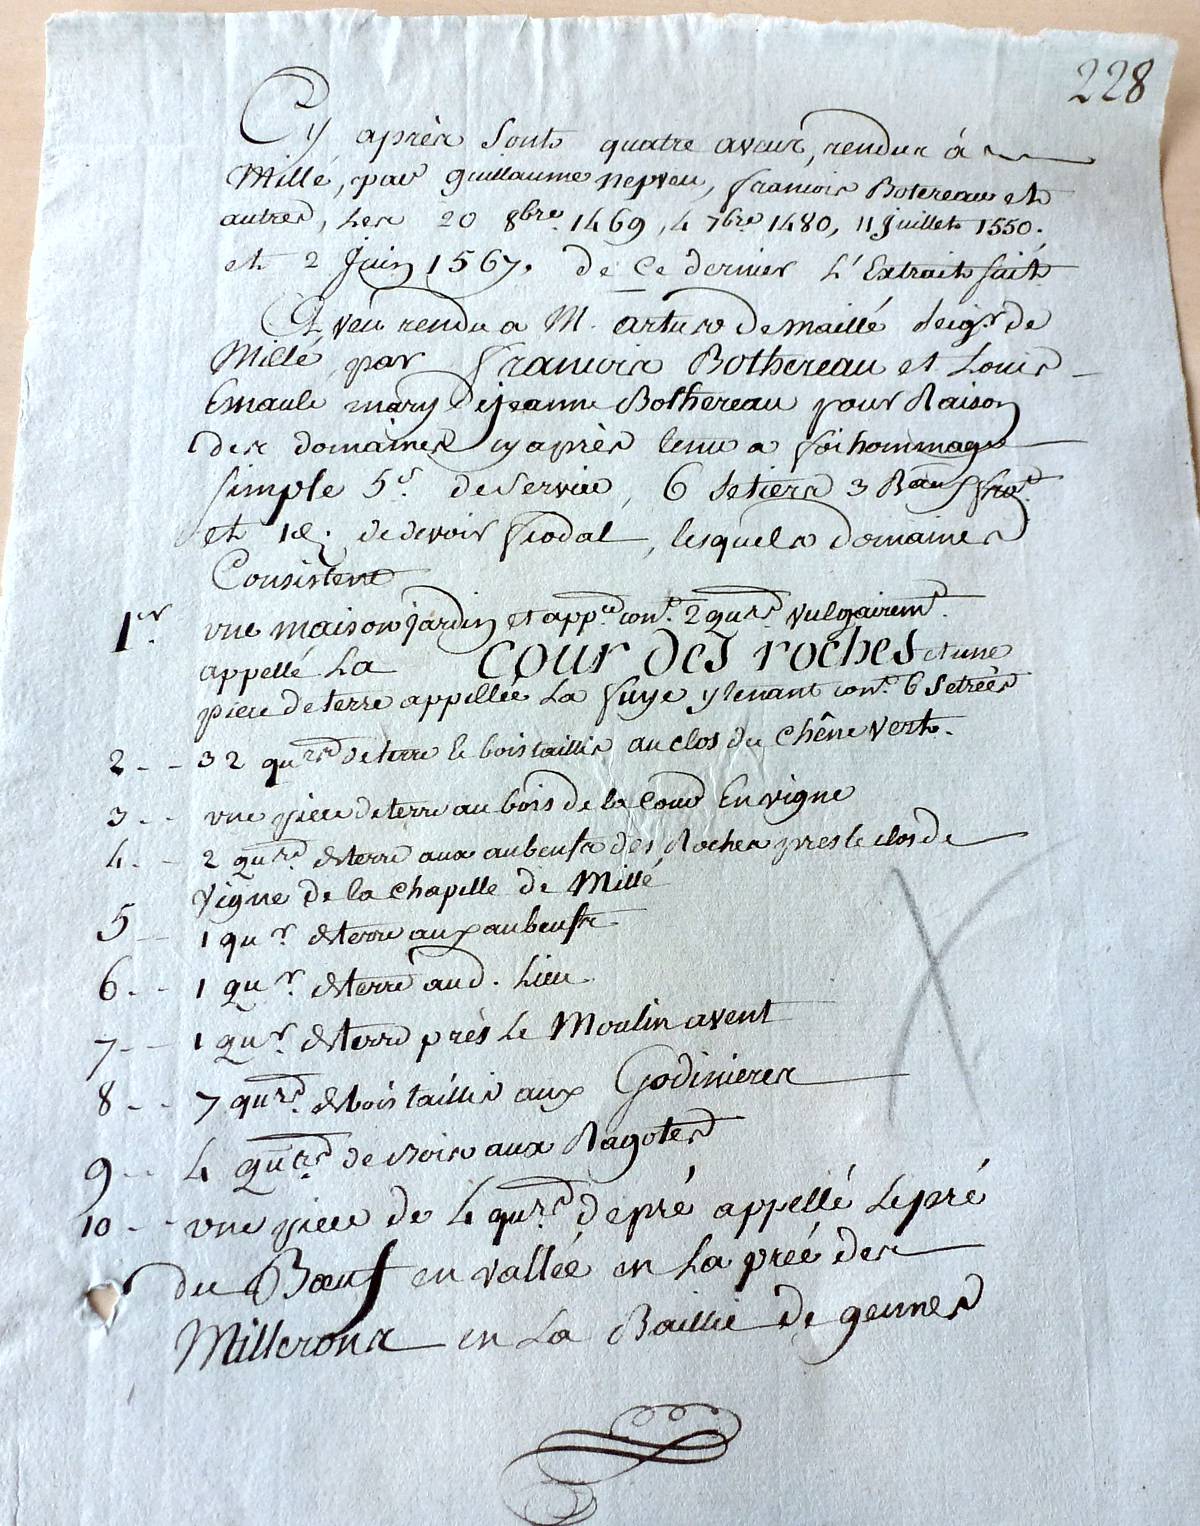 228
Cy après sont quatre aveux, rendus à
Millé, par guillaume nepveu, francois Botereau et
autres, les 20 8bre. 1469, 4 7bre 1480, 11 Juillet 1550.
et 2 Juin 1567, de ce dernier L'Extrait fait
Aveu rendu a M. artus de maillé Seigr. de
Millé, par francois Bothereau et Louis
Emault mary de jeanne Bothereau pour Raison
des domaines cy après tenu a foi hommage
simple 5s. de Service, 6 Setiers 3 Baux frot.
et 1d. de devoir feodal, lesquels domaines
Consistent
1er vne maison jardin et appces cont. 2 qurs. vulgairemt.
appellé La cour des roches et une
piece de terre appellée La fuye y tenant cont. 6 Setrées
2 - - 32 qurs de terre le bois taillis au clos du chêne vert.
3 - - vne piece de terre au bois de la Cour En vigne
4 - - 2 qurs. de terre aux aubeufs des Roches pres le clos de
vigne de la chapelle de Millé
5 - - 1 qur. de terre aux aubeufs
6 - - 1 qur. de terre aud. Lieu
7 - - 1 qur. de terre près le Moulin avent
8 - - 7 qurs. de bois taillis aux Godinieres
9 - - 4 qurs. de bois aux Ragotes
10 - - vne piece de 4 qurs. de pré appellé Le pré
du Bœuf en vallée en La preé des
Millerons en La Baillie de gennes